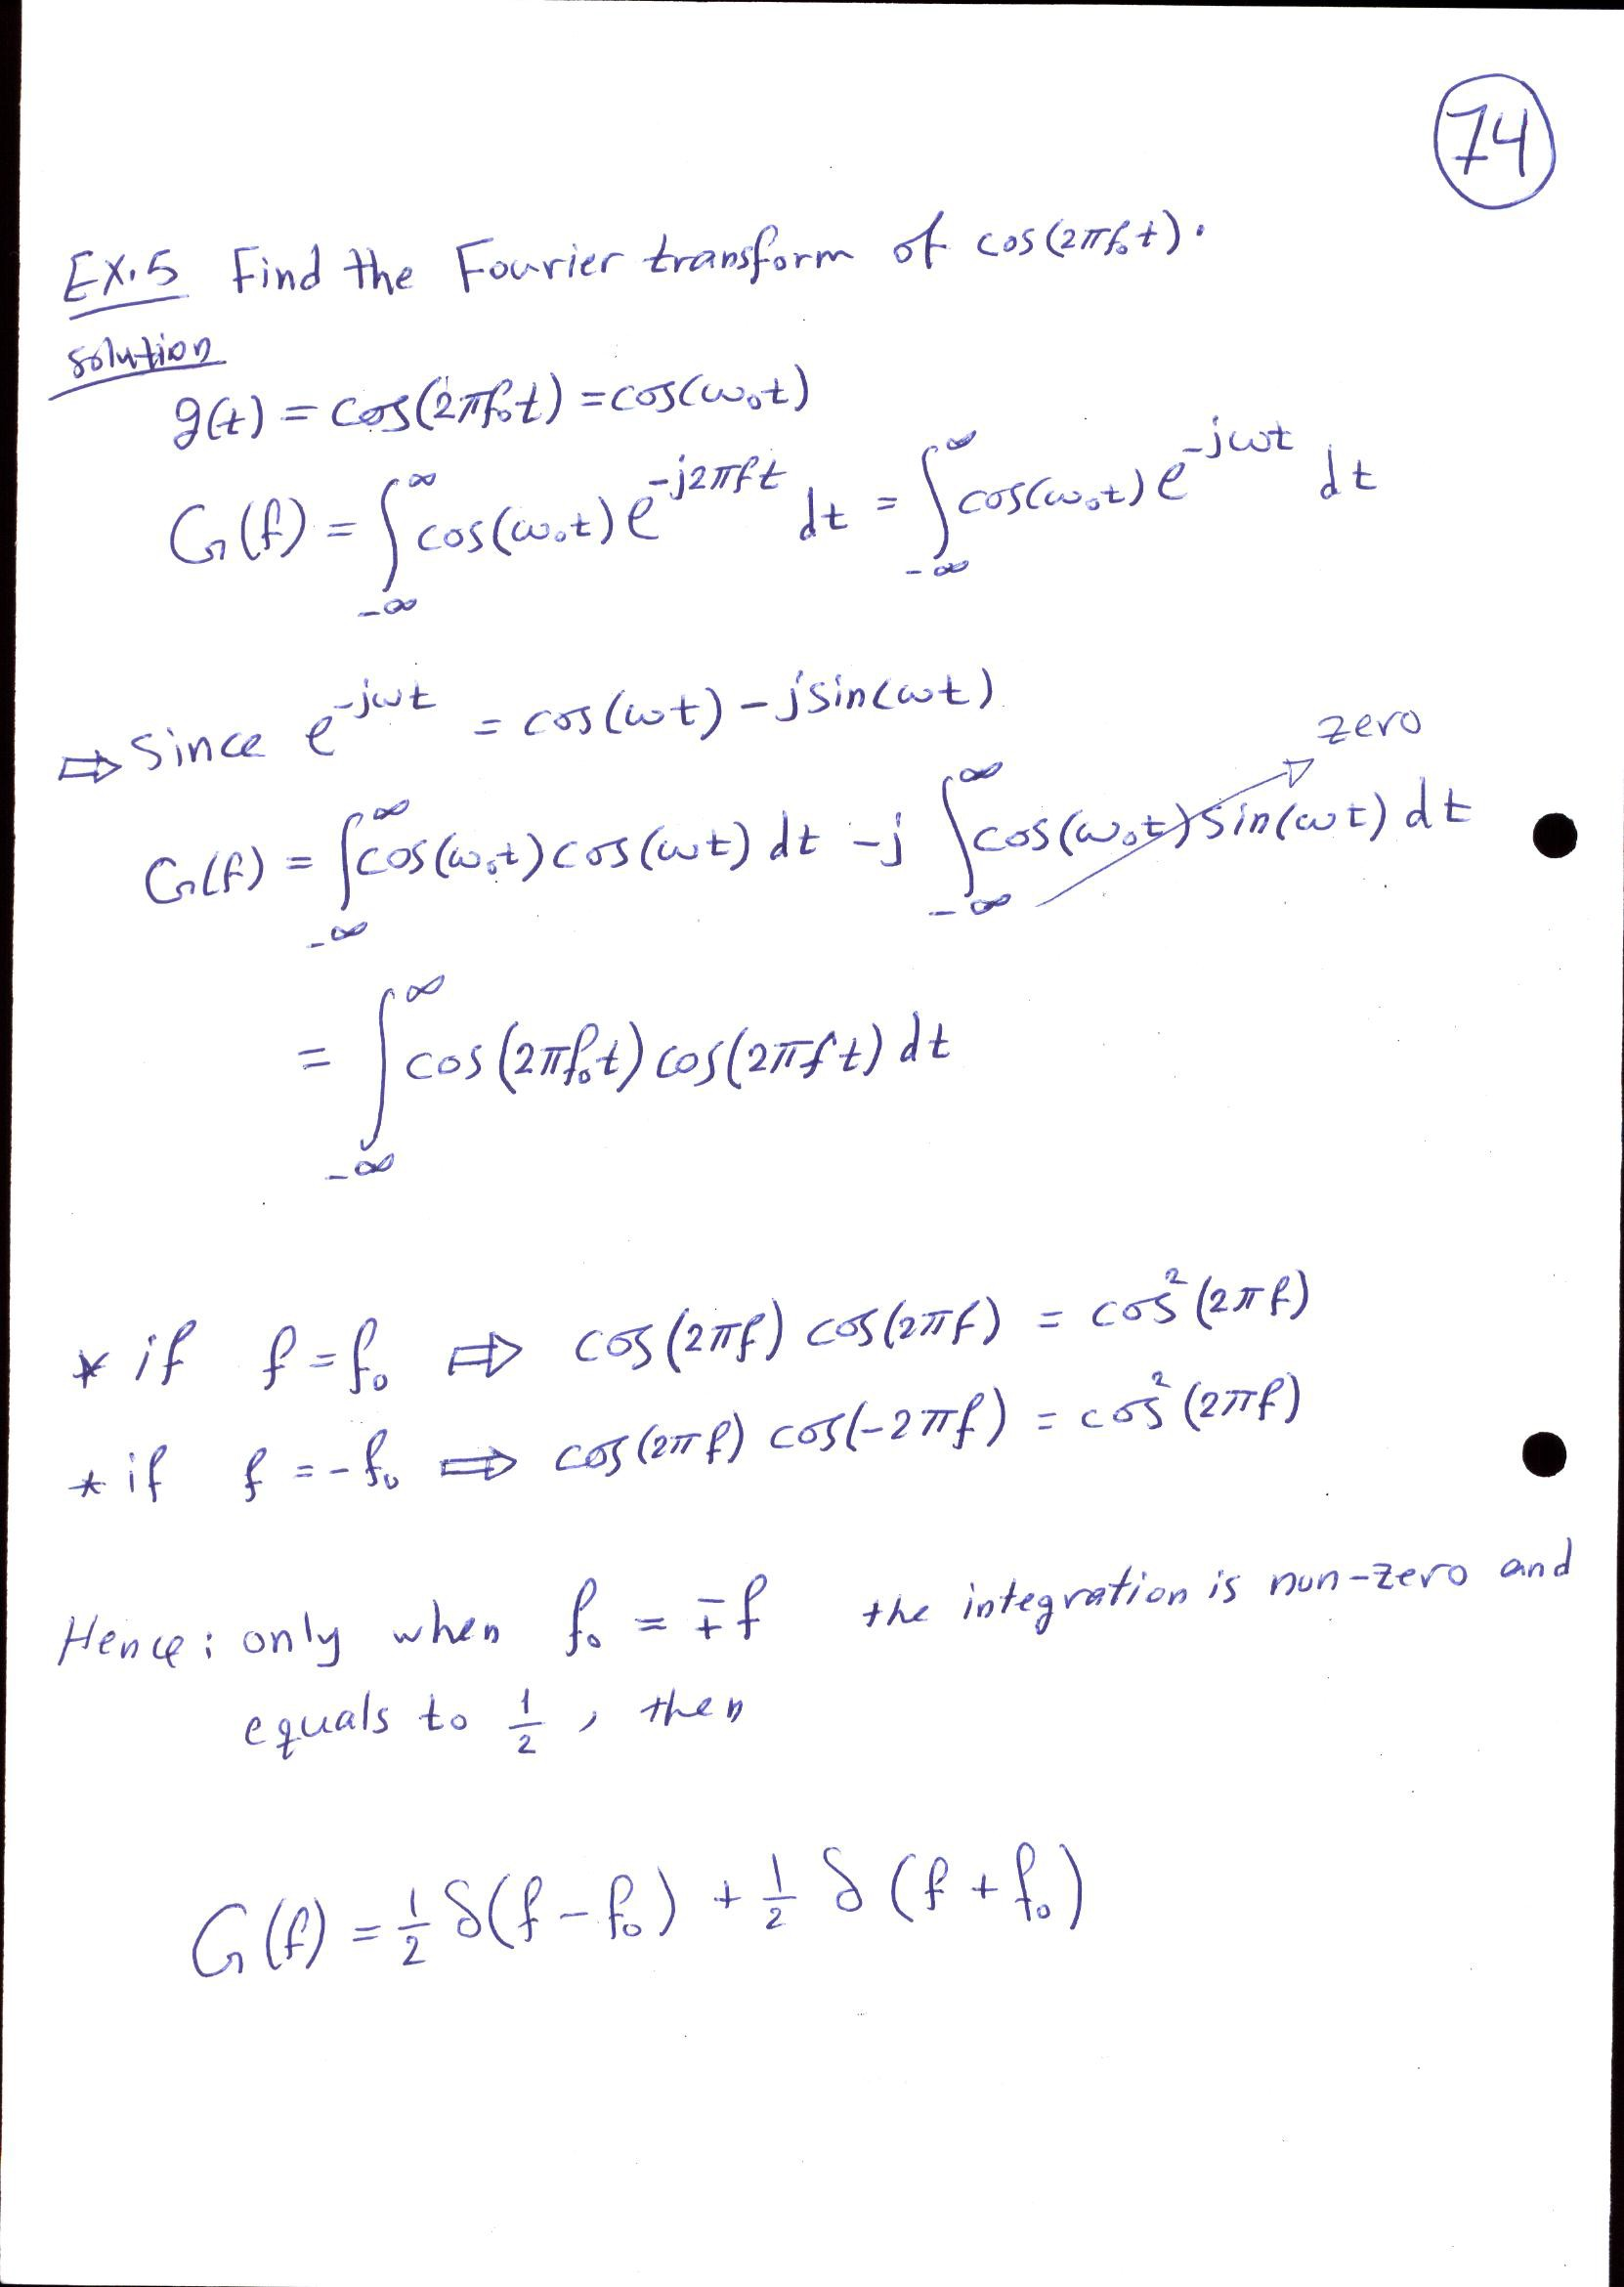 74
EX.5 Find the Fourier transform of cos(2πf₀t).
solution
g(t) = cos(2πf₀t) = cos(ω₀t)
G(f) = ∫_{-∞}^{∞} cos(ω₀t) e^{-j2πft} dt = ∫_{-∞}^{∞} cos(ω₀t) e^{-jωt} dt
⇒ Since e^{-jωt} = cos(ωt) - j sin(ωt)
zero
G(f) = ∫_{-∞}^{∞} cos(ω₀t) cos(ωt) dt - j ∫_{-∞}^{∞} cos(ω₀t) sin(ωt) dt
= ∫_{-∞}^{∞} cos(2πf₀t) cos(2πft) dt
* if f = f₀ ⇒ cos(2πf) cos(2πf) = cos²(2πf)
* if f = -f₀ ⇒ cos(2πf) cos(-2πf) = cos²(2πf)
Hence: only when f₀ = ∓f the integration is non-zero and
equals to 1/2, then
G(f) = 1/2 δ(f - f₀) + 1/2 δ(f + f₀)